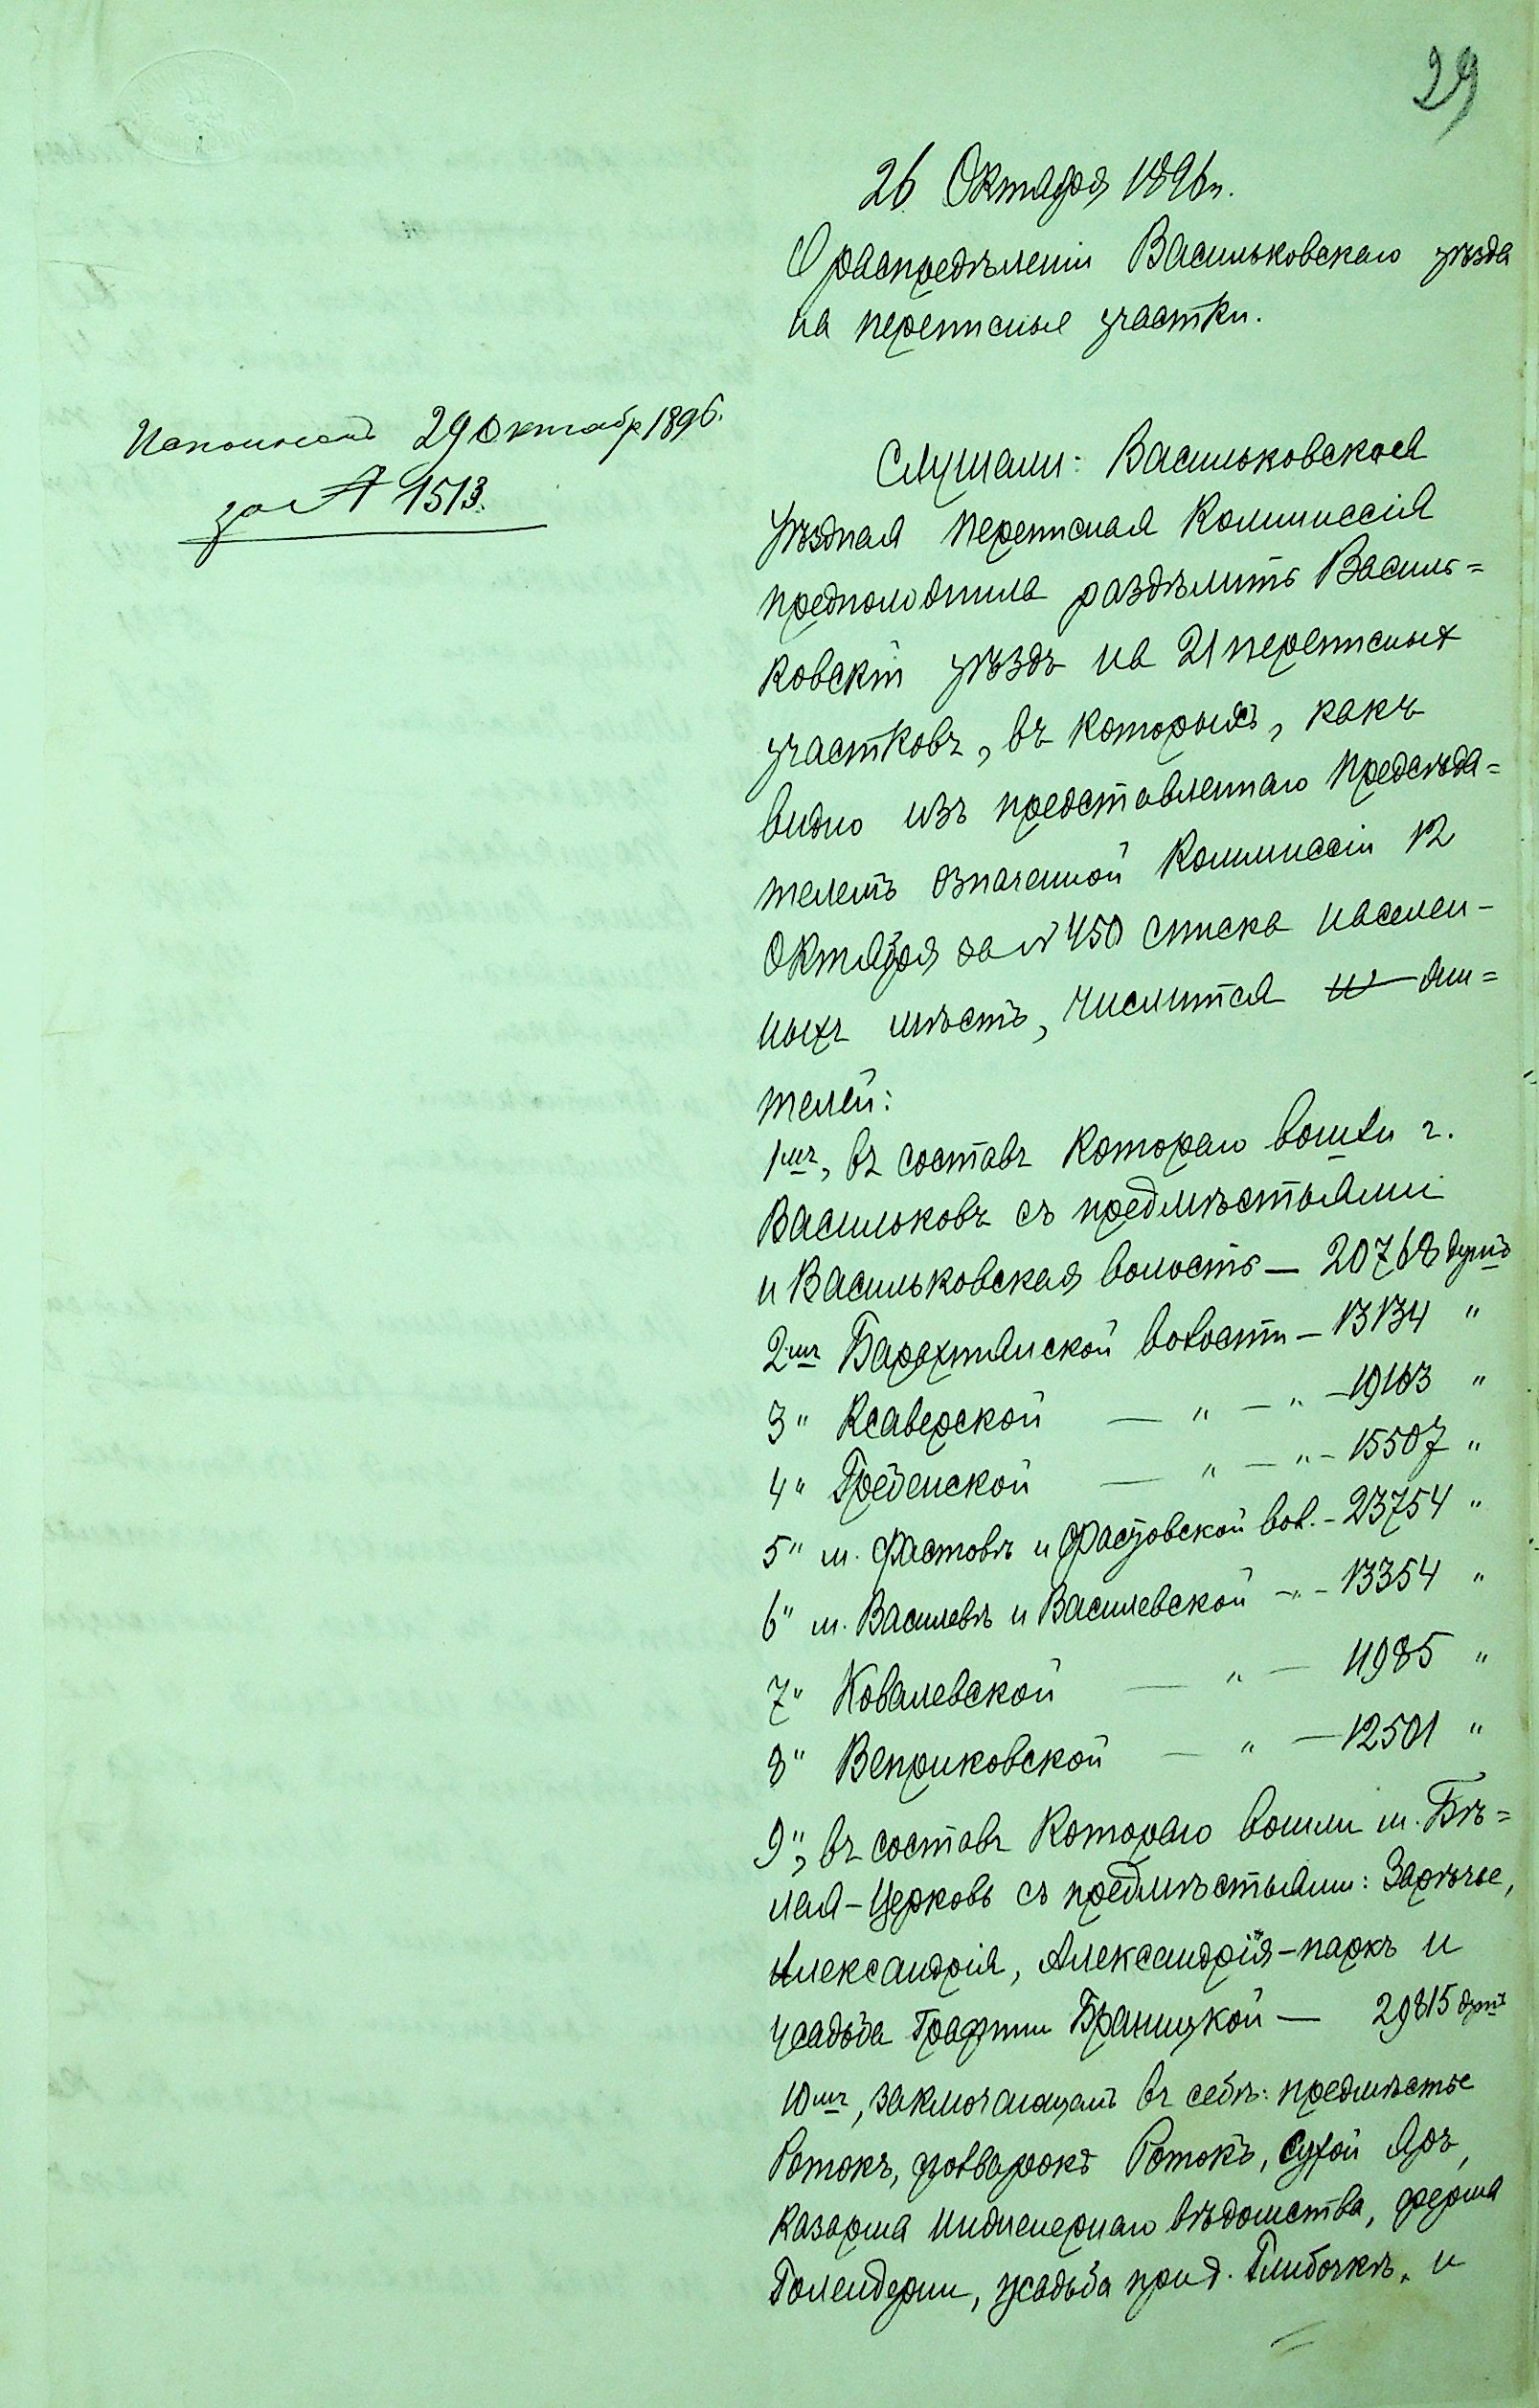 29
26 Октября 1896 г.
О распредѣленіи Васильковскаго уѣзда
на переписные участки.
Исполнено 29 Октябр 1896.
за № 1513.
Слушали: Васильковская
уѣздная переписная Коммиссія
предположила раздѣлить Василь=
ковскій уѣздъ на 21 переписныхъ
участковъ, въ которыхъ, какъ
видно изъ представленнаго Предсѣда=
телемъ означенной Коммиссіи 12
Октября за № 450 списка населен-
ныхъ мѣстъ, числится жи=
телей:
1мъ, въ составъ котораго вошли г.
Васильковъ съ предмѣстьями
и Васильковская волость — 20768 душъ
2мъ Барахтянской волости — 13134 "
3" Ксаверской — " — " — 19163 "
4" Гребенской — " — " — 15507 "
5" м. Фастовъ и Фастовской вол. — 23754 "
6" м. Василевъ и Василевской — " — 13354 "
7" Ковалевской — " — 11985 "
8" Веприковской — " — 12501 "
9", въ составъ котораго вошли м. Бѣ=
лая-Церковь съ предмѣстьями: Зарѣчье,
Александрія, Александрія-паркъ и
усадьба Графини Браницкой — 29815 душъ
10мъ, заключающемъ въ себѣ: предмѣстье
Ротокъ, фольварокъ Ротокъ, Сухой Яръ,
казарма Инженернаго вѣдомства, ферма
Голендерни, усадьба при д. Глибочкѣ, и